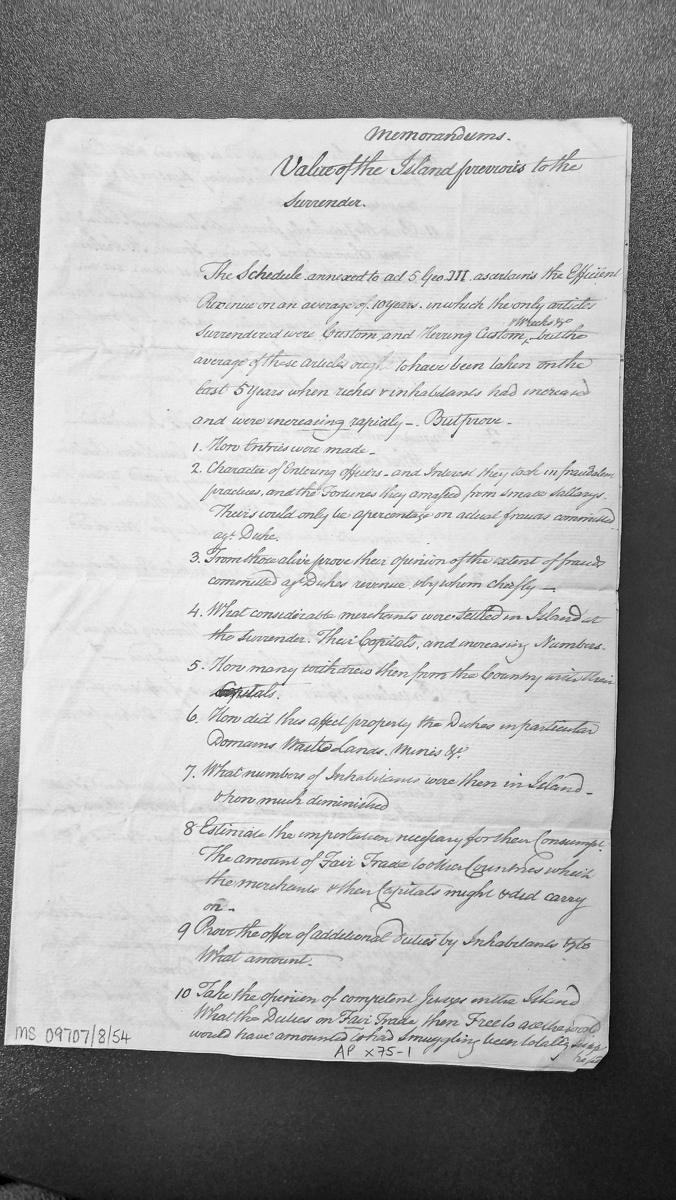 Memorandums.
Value of the Island previous to the
Surrender.
The Schedule annexed to act 5 Geo. III. ascertains the Efficient
Revenue on an average of 10 years in which the only articles
Wrecks &c
Surrendered were Custom and Herring Custom, but the
average of these articles ought to have been taken on the
last 5 years when riches & inhabitants had increased
and were increasing rapidly -. But prove -
1. How Entries were made -
2. Character of Entering officers - and Interest they took in fraudulent
practices, and the Fortunes they amassed from small Sallarys.
Theirs would only be a percentage on actual frauds committed
agt. Duke.
3. From those alive prove their opinion of the extent of frauds
committed agt Dukes revenue & by whom chiefly -
4. What considerable merchants were settled in Island at
the Surrender. Their Capitals, and increasing Numbers.
5. How many withdrew then from the Country with their
Capitals.
6. How did this affect property the Dukes in particular
Domains Waste Lands. Mines &c.
7. What numbers of Inhabitants were then in Island -
& how much diminished
8 Estimate the importation necessary for their Consumpt.
The amount of Fair Trade to other Countries which
the merchants & their Capitals might & did carry
on -
9 Prove the offer of additional duties by Inhabitants & to
What amount -
10 Take the opinion of competent Judges in the Island
What the Duties on Fair Trade, then Free to all the world
would have amounted to had Smuggling been totally
MS 09707/8/54
AP X75-1